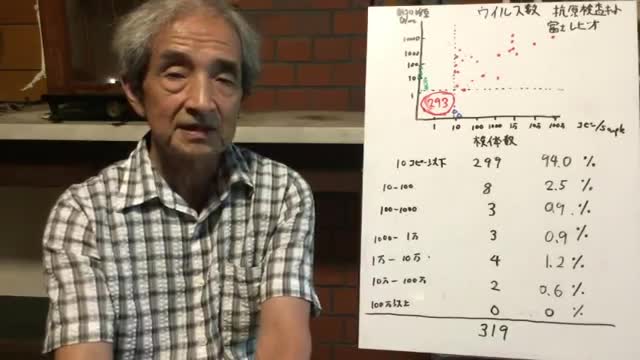 ウイルス数 抗原検査キット
富士レビオ
1000
100
10
1
293
1 10 100 1000
コピー/Sample
検体数
10コピー以下 299 94.0 %
10-100 8 2.5 %
100-1000 3 0.9 %
1000-1万 3 0.9 %
1万-10万 4 1.2 %
10万-100万 2 0.6 %
100万以上 0 0 %
319